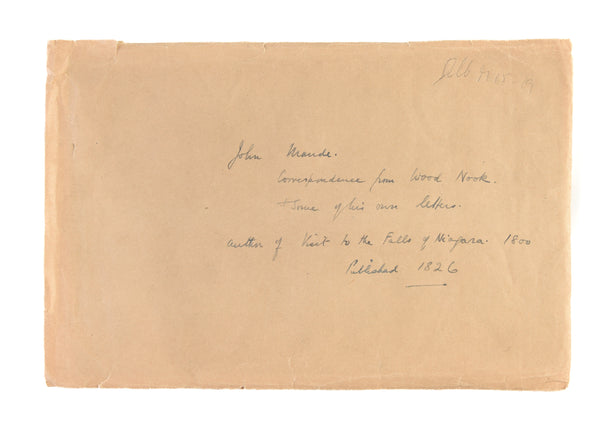 John Maude.
Correspondence from Wood Nook.
+ Some of his own letters.
author of Visit to the Falls of Niagara. 1800
Published 1826